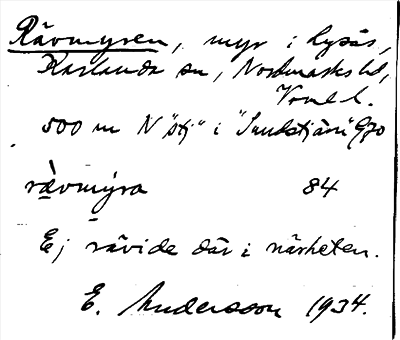 Rävmyren, myr i Lysås,
Karlanda sn, Nordmarks hd,
Vrml l.
500 m N "stj" i "Sundstjärn" G70
rävmy̆ra 84
Ej rävide där i närheten.
E. Andersson 1934.